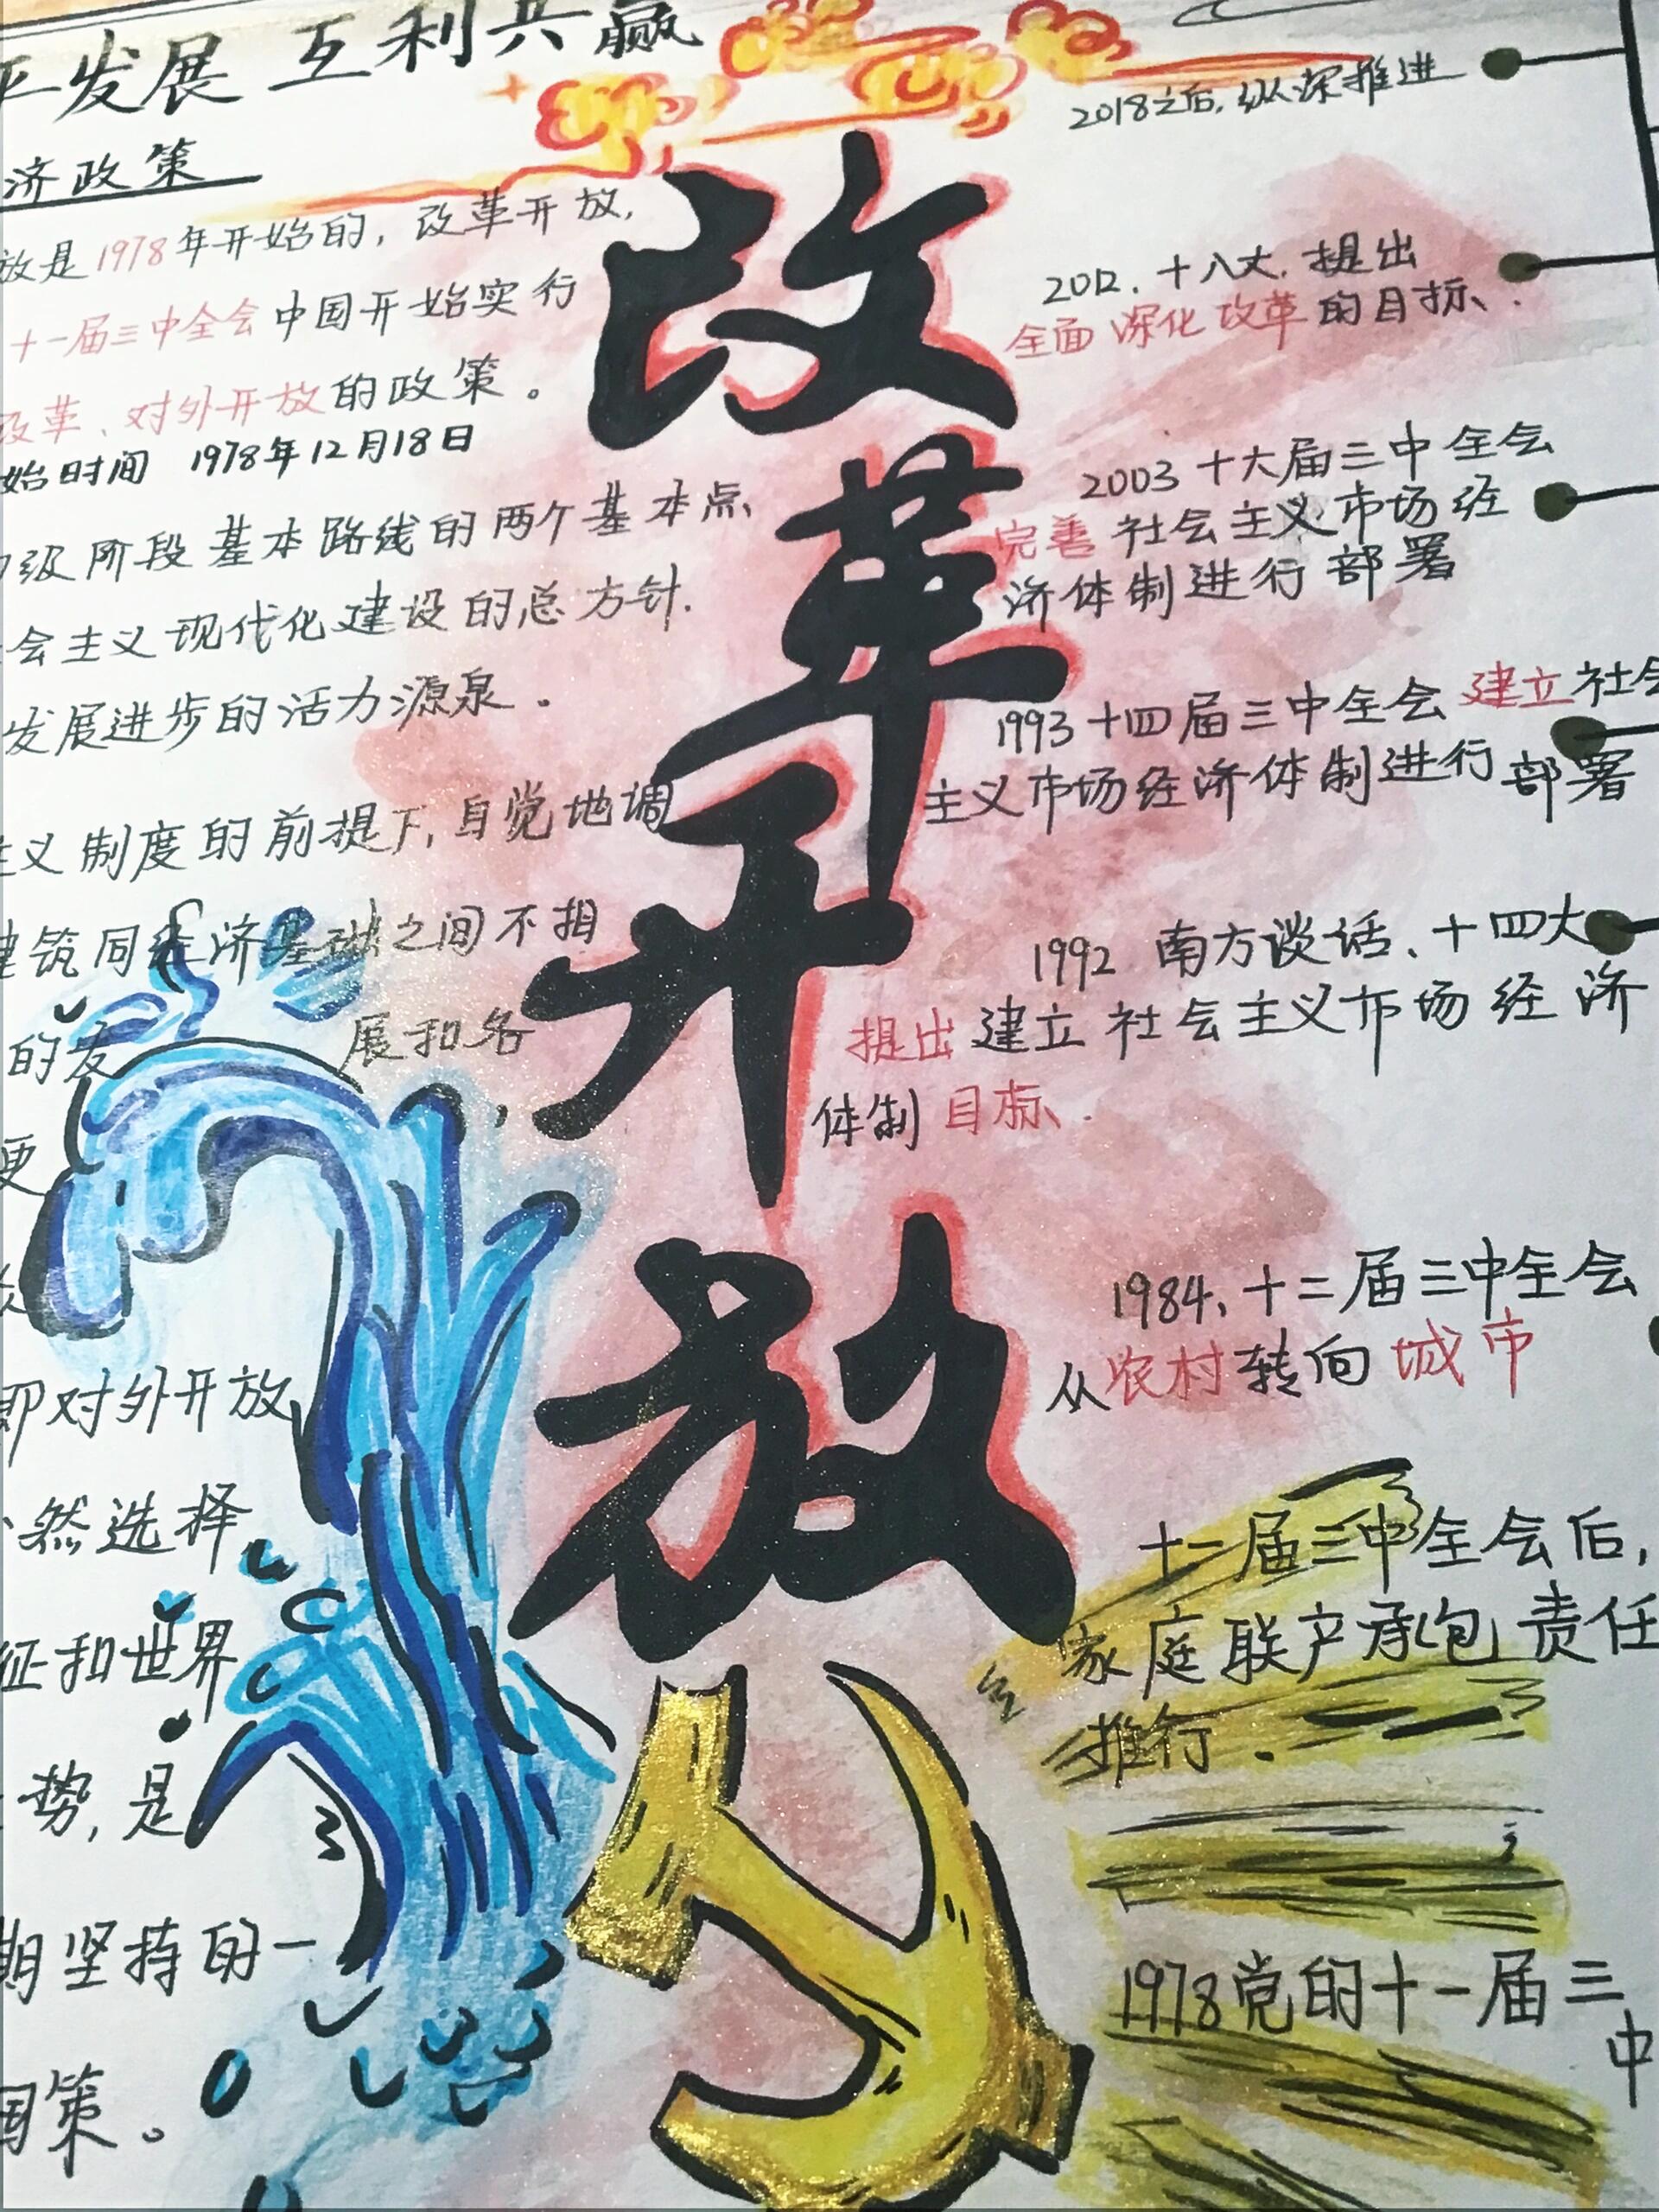 平发展 互利共赢
济政策
放是1978年开始的，改革开放，
十一届三中全会中国开始实行
改革、对外开放的政策。
始时间 1978年12月18日
级阶段基本路线的两个基本点、
会主义现代化建设的总方针.
发展进步的活力源泉.
主义制度的前提下，自觉地调
建筑同经济基础之间不相
的发 展和各
更
即对外开放
然选择
征和世界
势，是
期坚持的一
国策。
改革开放
2018之后，纵深推进
2012.十八大.提出
全面深化改革的目标、.
2003十六届三中全会
完善社会主义市场经
济体制进行部署
1993十四届三中全会建立社会
主义市场经济体制进行部署
1992 南方谈话、十四大
提出建立社会主义市场经济
体制目标、.
1984、十二届三中全会
从农村转向城市
十一届三中全会后，
家庭联产承包责任
推行.
1978党的十一届三
中